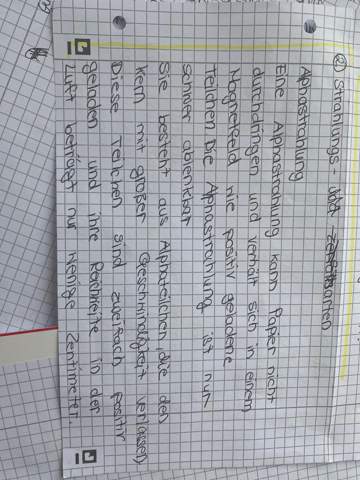 ② Strahlungs- und Zerfallsarten
Alphastrahlung
Eine Alphastrahlung kann Papier nicht
durchdringen und verhält sich in einem
Magnetfeld wie positiv geladene
Teilchen Die Alphastrahlung ist nur
schwer ablenkbar
Sie besteht aus Alphateilchen die den
Kern mit großer Geschwindigkeit verlassen
Diese Teilchen sind zweifach positiv
geladen und ihre Reichweite in der
Luft beträgt nur wenige Zentimeter.